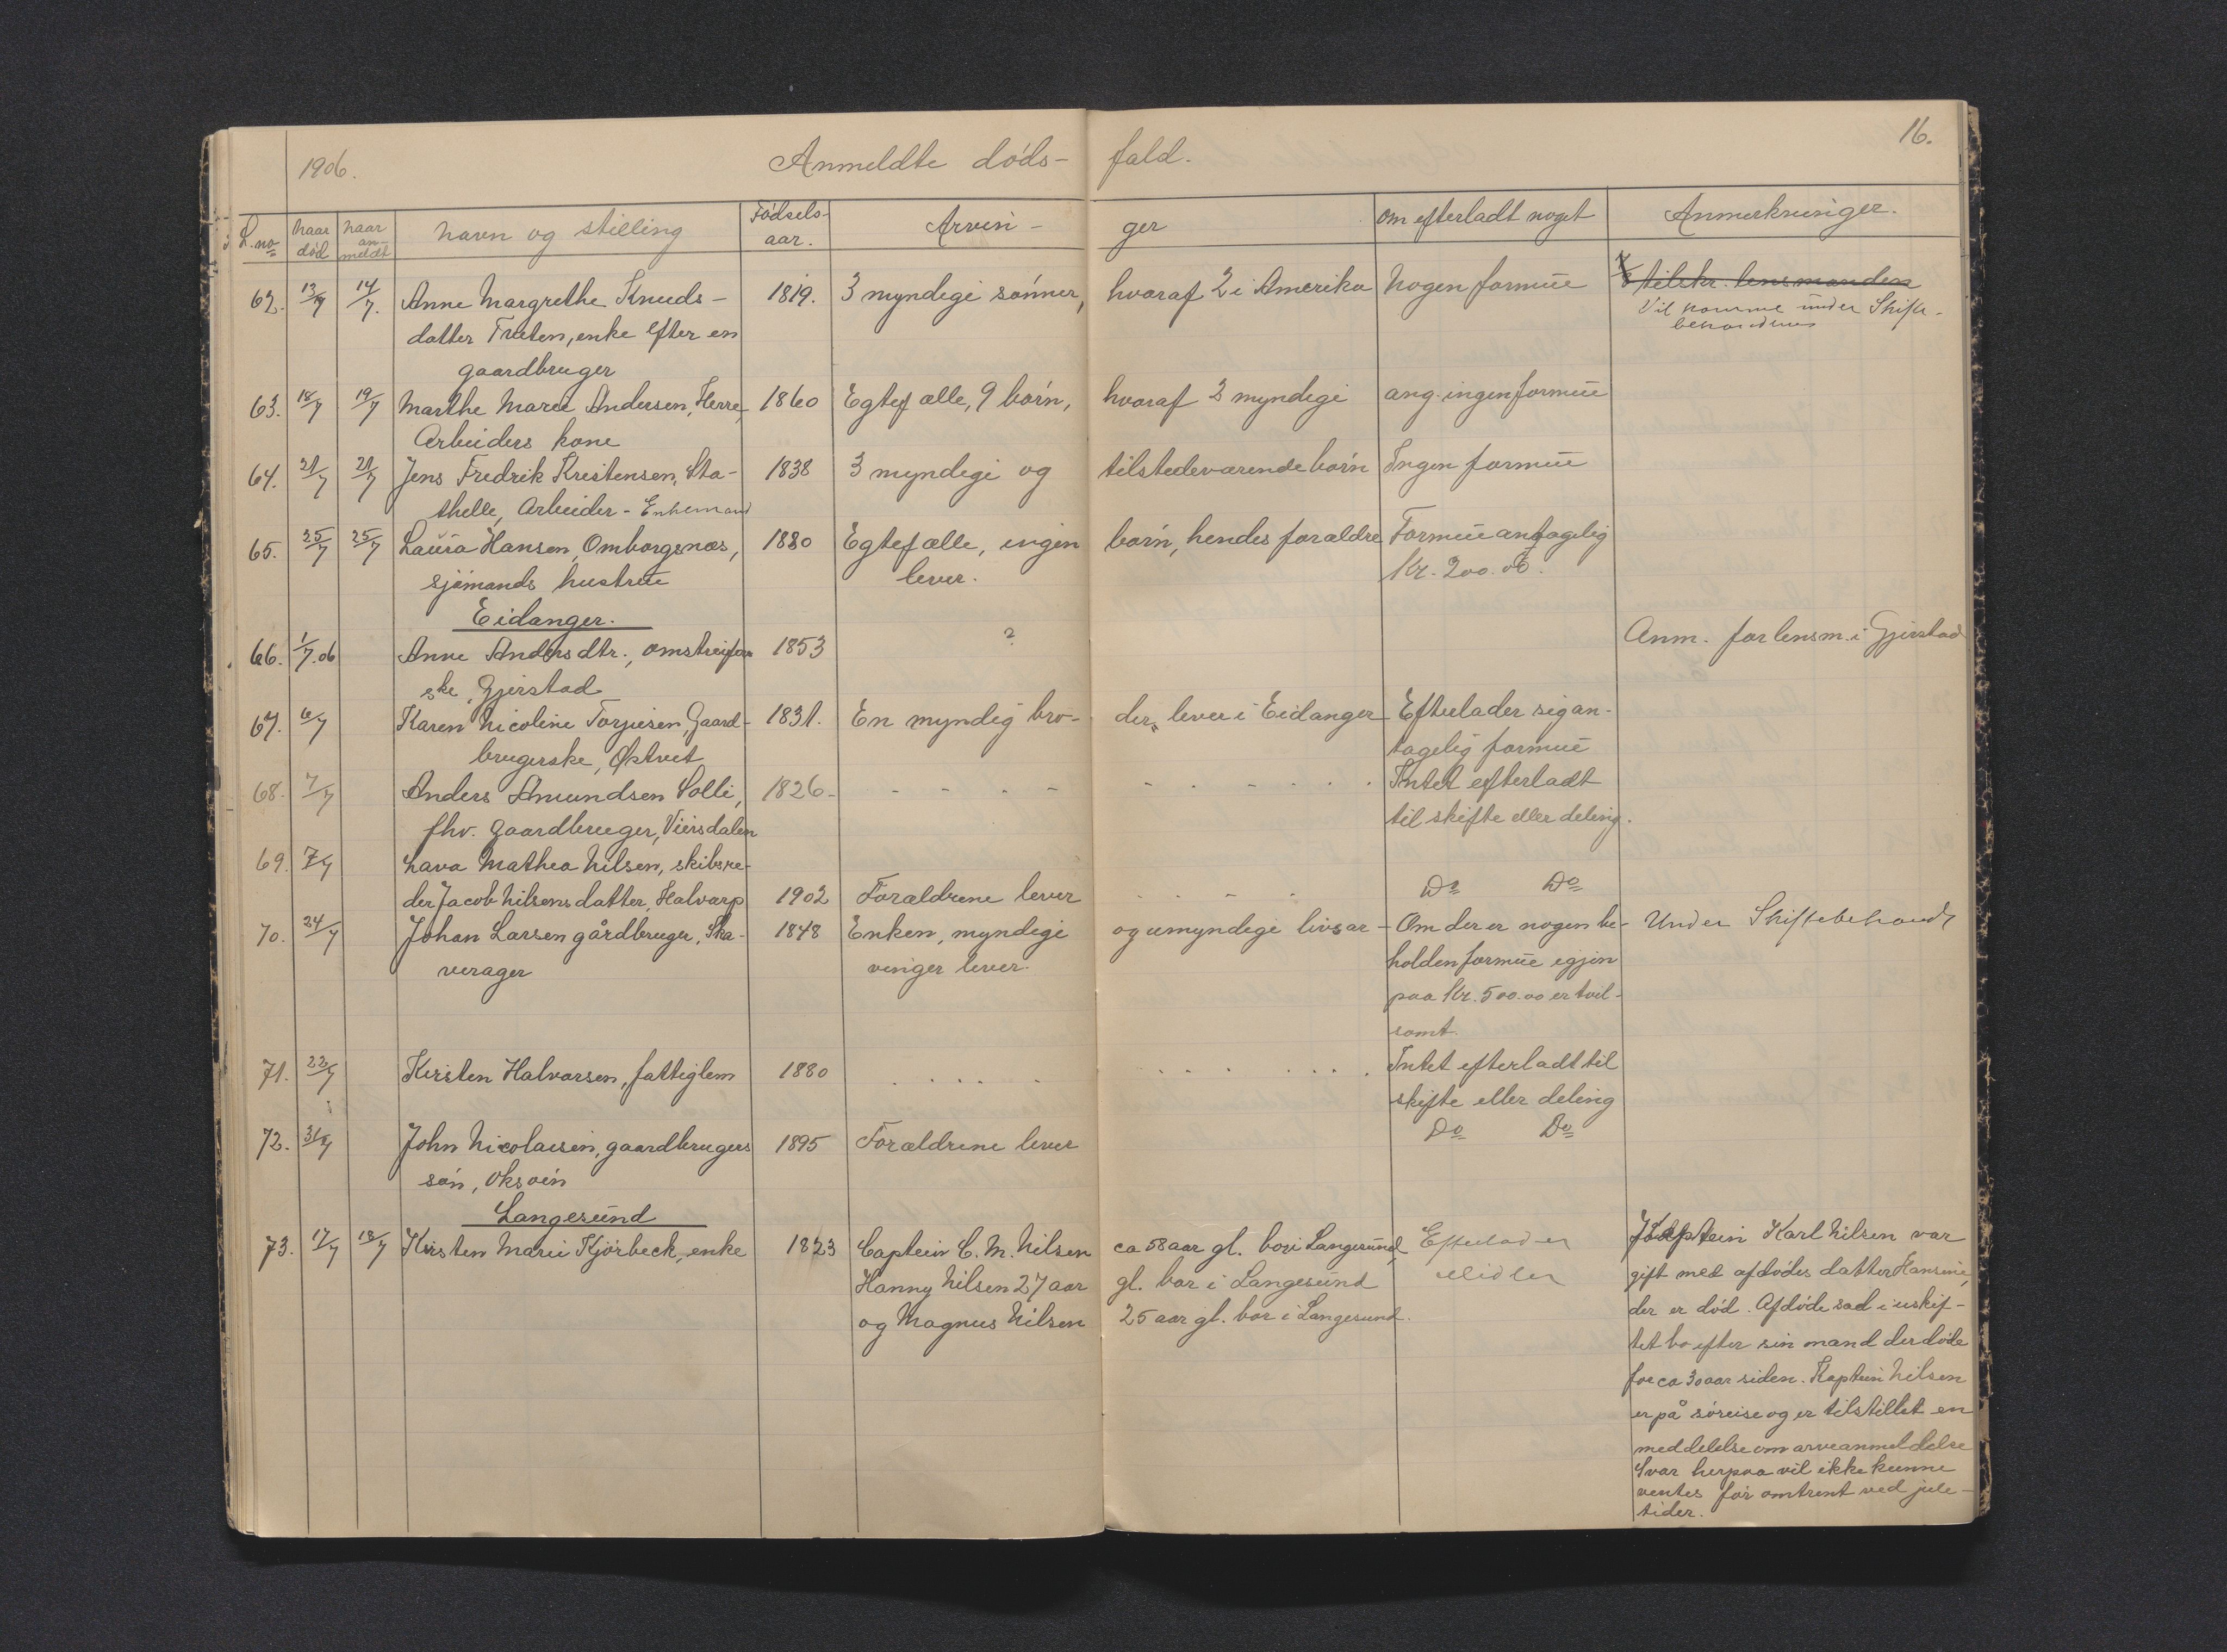 16.
1906. Anmeldte døds- fald.
L.no naar død naar an- meldt navn og stilling Fødsels- aar. Arvin- ger om efterladt noget Anmerkninger.
62. 13/7 14/7. Anne Margrethe Knuds- 1819. 3 myndige sønner, hvoraf 2 i Amerika Nogen formue tilskr. lensmanden
datter Træten, enke efter en Vil komme under Skifte-
gaardbruger
63. 18/7 19/7 Marthe Marie Andersen, Herre, 1860 Egtefælle, 9 børn, hvoraf 3 myndige ang. ingen formue
Arbeiders kone
64. 21/7 21/7 Jens Fredrik Kristensen, Sta- 1838 3 myndige og tilstedeværende børn Ingen formue
thelle, Arbeider - Enkemand
65. 25/7 25/7 Laura Hansen, Omborgsnæs, 1880 Egtefælle, ingen børn, hendes forældre Formue antagelig
sjømands hustru lever. Kr. 200.00.
Eidanger.
66. 1/7.06 Anne Andersdtr., omstreifer- 1853 ? Anm. for lensm. i Gjerstad
ske, Gjerstad
67. 6/7 Karen Nicoline Torjusen, Gaard- 1831. En myndig bro- der, lever i Eidanger Efterlader sig an-
brugerske, Øktvet tagelig formue
68. 7/7 Anders Amundsen Solli, 1826 - - - - - - - - - - Intet efterladt
fhv. gaardbruger, Viersdalen til skifte eller deling.
69. 7/7 Lava Mathea Nilsen, skibsre-
der Jacob Nilsens datter, Halvarp 1902 Forældrene lever - - - - Do Do
70. 24/7 Johan Larsen gårdbruger, Ska- 1848 Enken, myndige og umyndige livsar- Om der er nogen be- Under Skiftebehandl
verager vinger lever. holden formue igjen
paa Kr. 500.00 er tvil-
somt.
71. 22/7 Kirsten Halvorsen, fattiglem 1880 . . . . . . . . . . . Intet efterladt til
skifte eller deling
72. 31/7 John Nicolaisen, gaardbrugers 1895 Forældrene lever Do Do
søn, Oksøin
Langesund
73. 17/7 18/7 Kirsten Marie Kjørbeck, enke 1823 Captein C. M. Nilsen ca 58 aar gl. bor i Langesund, Efterlader Kaptein Karl Nilsen var
Hanny Nilsen 27 aar gl. bor i Langesund Midler gift med afdødes datter Hansine,
og Magnus Nilsen 25 aar gl. bor i Langesund. der er død. Afdøde sad i uskif-
tet bo efter sin mand der døde
for ca 30 aar siden. Kaptein Nilsen
er på søreise og er tilstillet en
meddelelse om arveanmeldelse
Svar herpaa vil ikke kunne
ventes før omtrent ved jule-
tider.